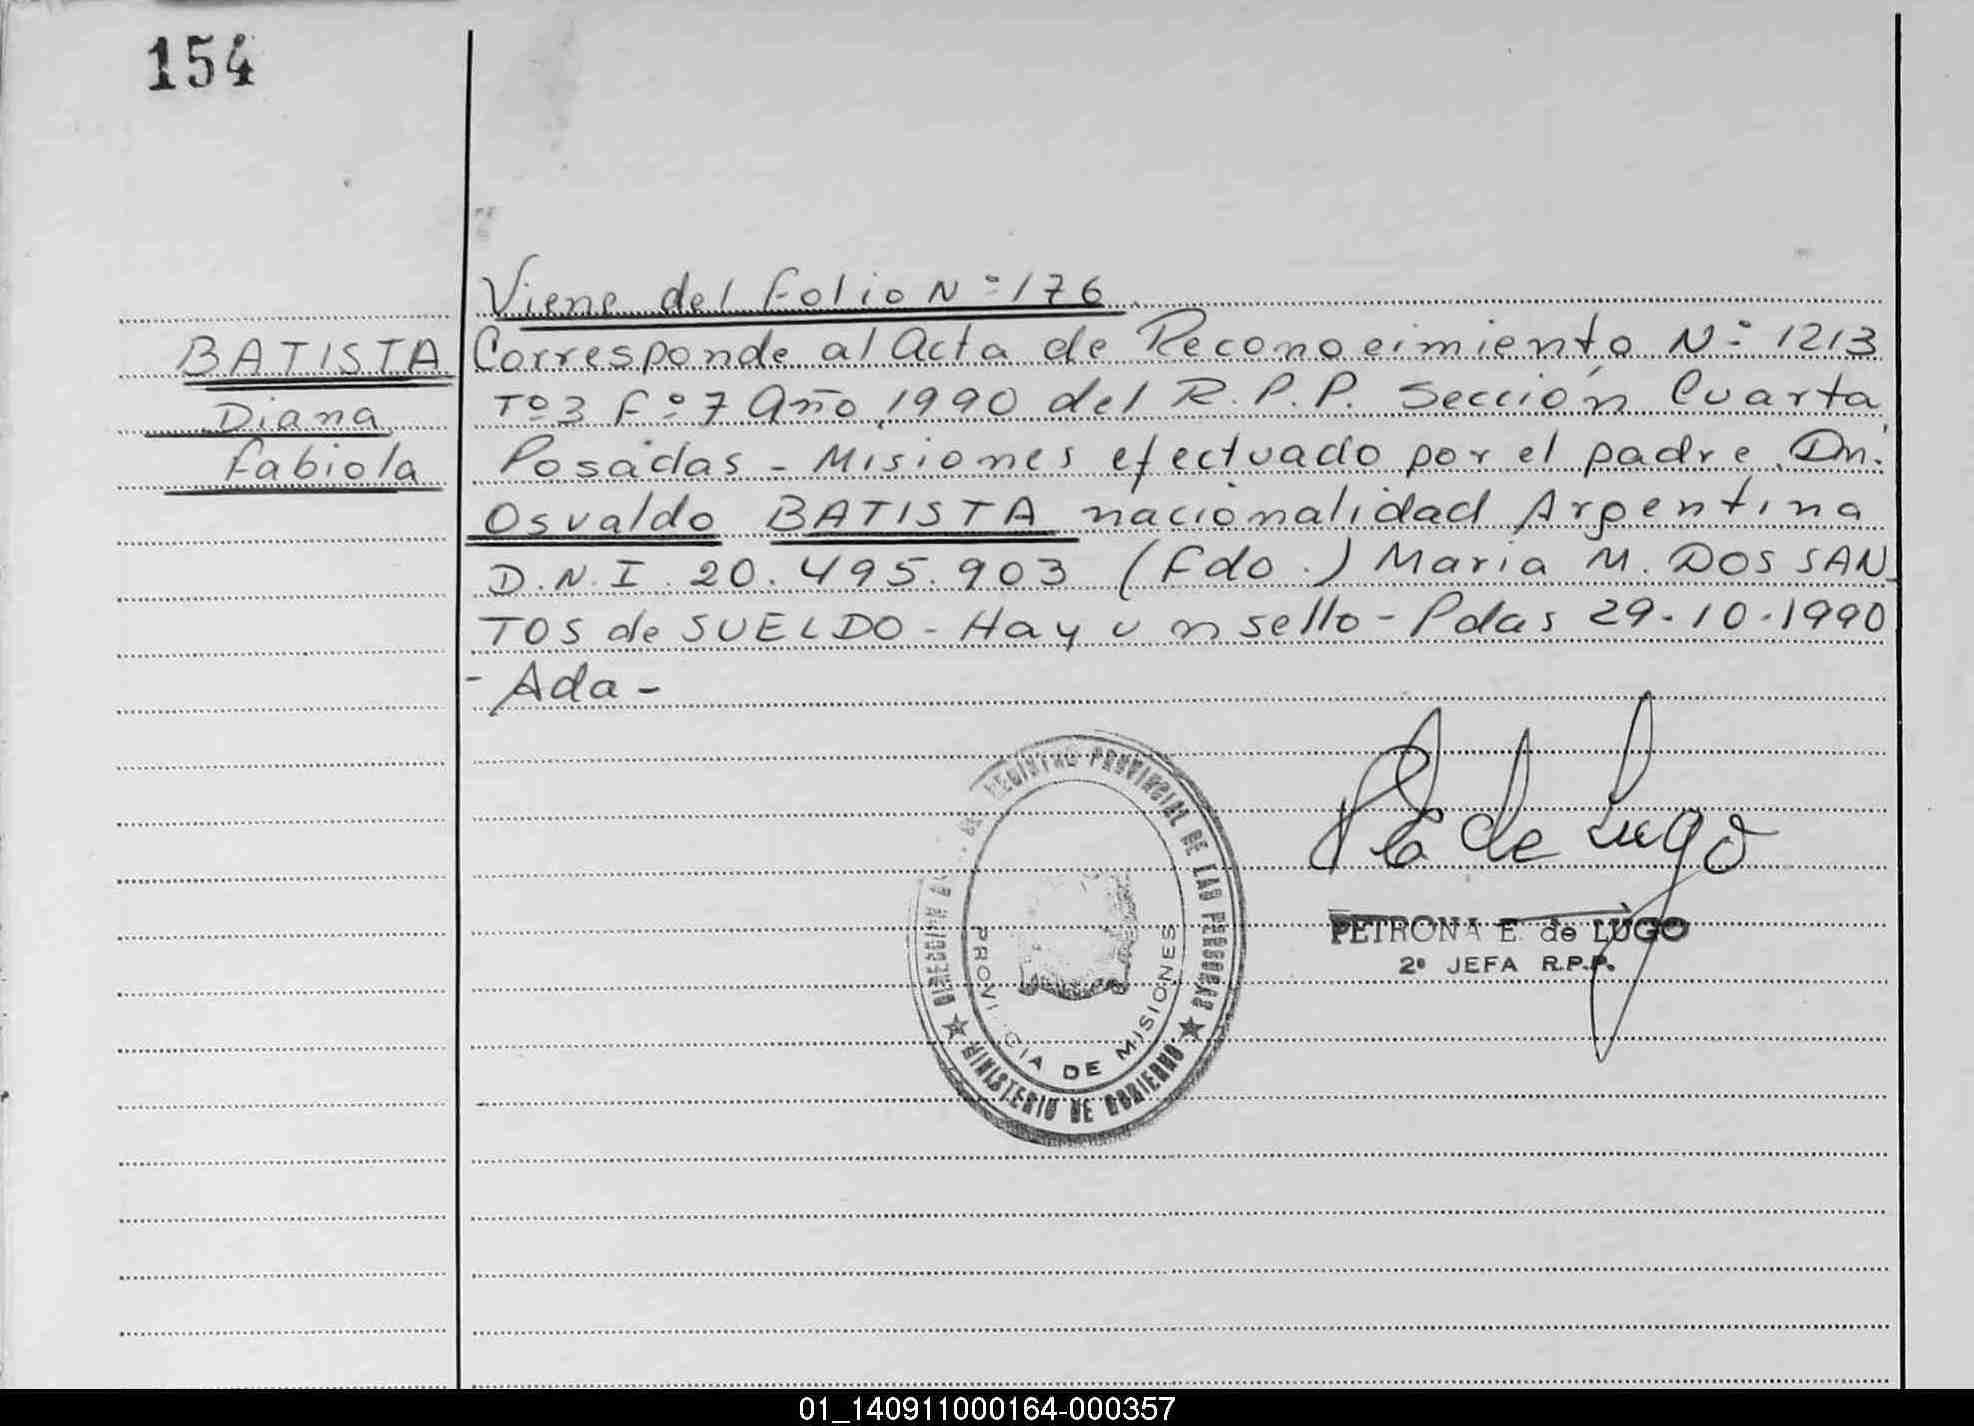 154
Viene del folio N° 176
BATISTA
Diana
Fabiola
Corresponde al Acta de Reconocimiento N° 1213
T° 3 F° 7 Año 1990 del R.P.P. Sección Cuarta
Posadas - Misiones efectuado por el padre Dn.
Osvaldo BATISTA nacionalidad Argentina
D.N.I. 20.495.903 (Fdo.) Maria M. DOS SAN
TOS de SUELDO - Hay un sello - Pdas 29-10-1990
- Ada -
de Lugo
PETRONA E. de LUGO
2° JEFA R.P.P.
REGISTRO PROVINCIAL DE LAS PERSONAS
DIRECCION
MINISTERIO DE GOBIERNO
PROVI CIA DE MISIONES
01_140911000164-000357